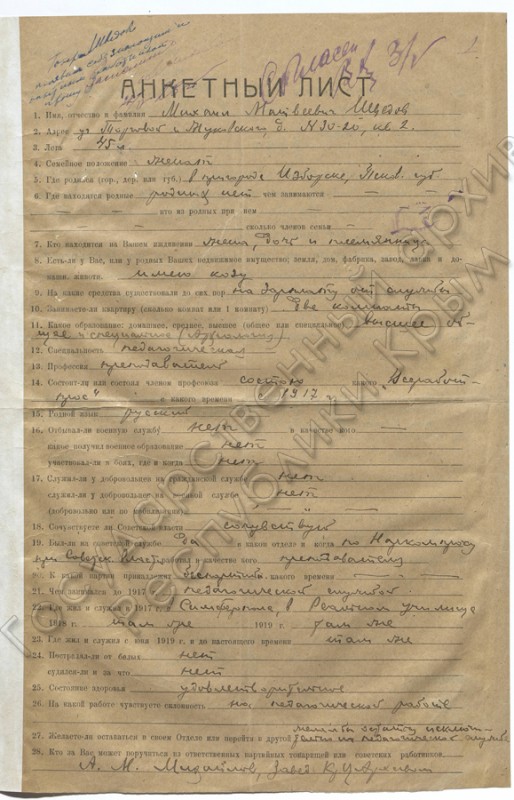 согласен 3/V
АНКЕТНЫЙ ЛИСТ
1. Имя, отчество и фамилия Михаил Матвеевич Шведов
2. Адрес уг. Торговой и Жуковского, д. N 30-20, кв. 2.
3. Лета 45 л.
4. Семейное положение женат
5. Где родился (гор., дер. или губ.) в пригороде Изборске, Псков. губ
6. Где находятся родные родных нет чем занимаются —
— кто из родных при нем —
— сколько членов семьи —
7. Кто находится на Вашем иждивении жена, дочь и племянница
8. Есть-ли у Вас, или у родных Ваших недвижимое имущество; земля, дом, фабрика, завод, лавки и до-
машн. животн. имею козу
9. На какие средства существовали до сих пор на зарплату от службы
10. Занимаете-ли квартиру (сколько комнат или 1 комнату) две комнаты
11. Какое образование: домашнее, среднее, высшее (общее или специальное) высшее об-
щее и специальное
12. Специальность педагогическая
13. Профессия преподаватель
14. Состоит-ли или состоял членом профсоюза состою какого „Всеработ-
прос" с какого времени с 1917 г.
15. Родной язык русский
16. Отбывал-ли военную службу нет в качестве кого —
какое получил военное образование нет
участвовал-ли в боях, где и когда нет
17. Служил-ли у добровольцев на гражданской службе нет
служил-ли у добровольцев на военной службе нет
(добровольно или по мобилизации) "
18. Сочувствуете ли Советской власти сочувствую
19. Был-ли на советской службе Да в каком отделе и когда по Наркомпросу
при Советск. Власти работал в качестве кого преподаватель
20. К какой партии принадлежит беспартийн. с какого времени —
21. Чем занимался до 1917 г. педагогической службой
22. Где жил и служил в 1917 г. в Симферополе, в Реальном училище
1918 г. там же 1919 г. там же
23. Где жил и служил с июня 1919 г. и до настоящего времени там же
24. Пострадал-ли от белых нет
судился-ли и за что нет
25. Состояние здоровья удовлетворительное
26. На какой работе чувствуете склонность на педагогической работе
27. Желаете-ли оставаться в своем Отделе или перейти в другой желал бы остаться исключи-
тельно на педагогической службе
28. Кто за Вас может поручиться из ответственных партийных товарищей или советских работников
А. М. Михайлов, Завед.
Государственный архив
Республики Крым